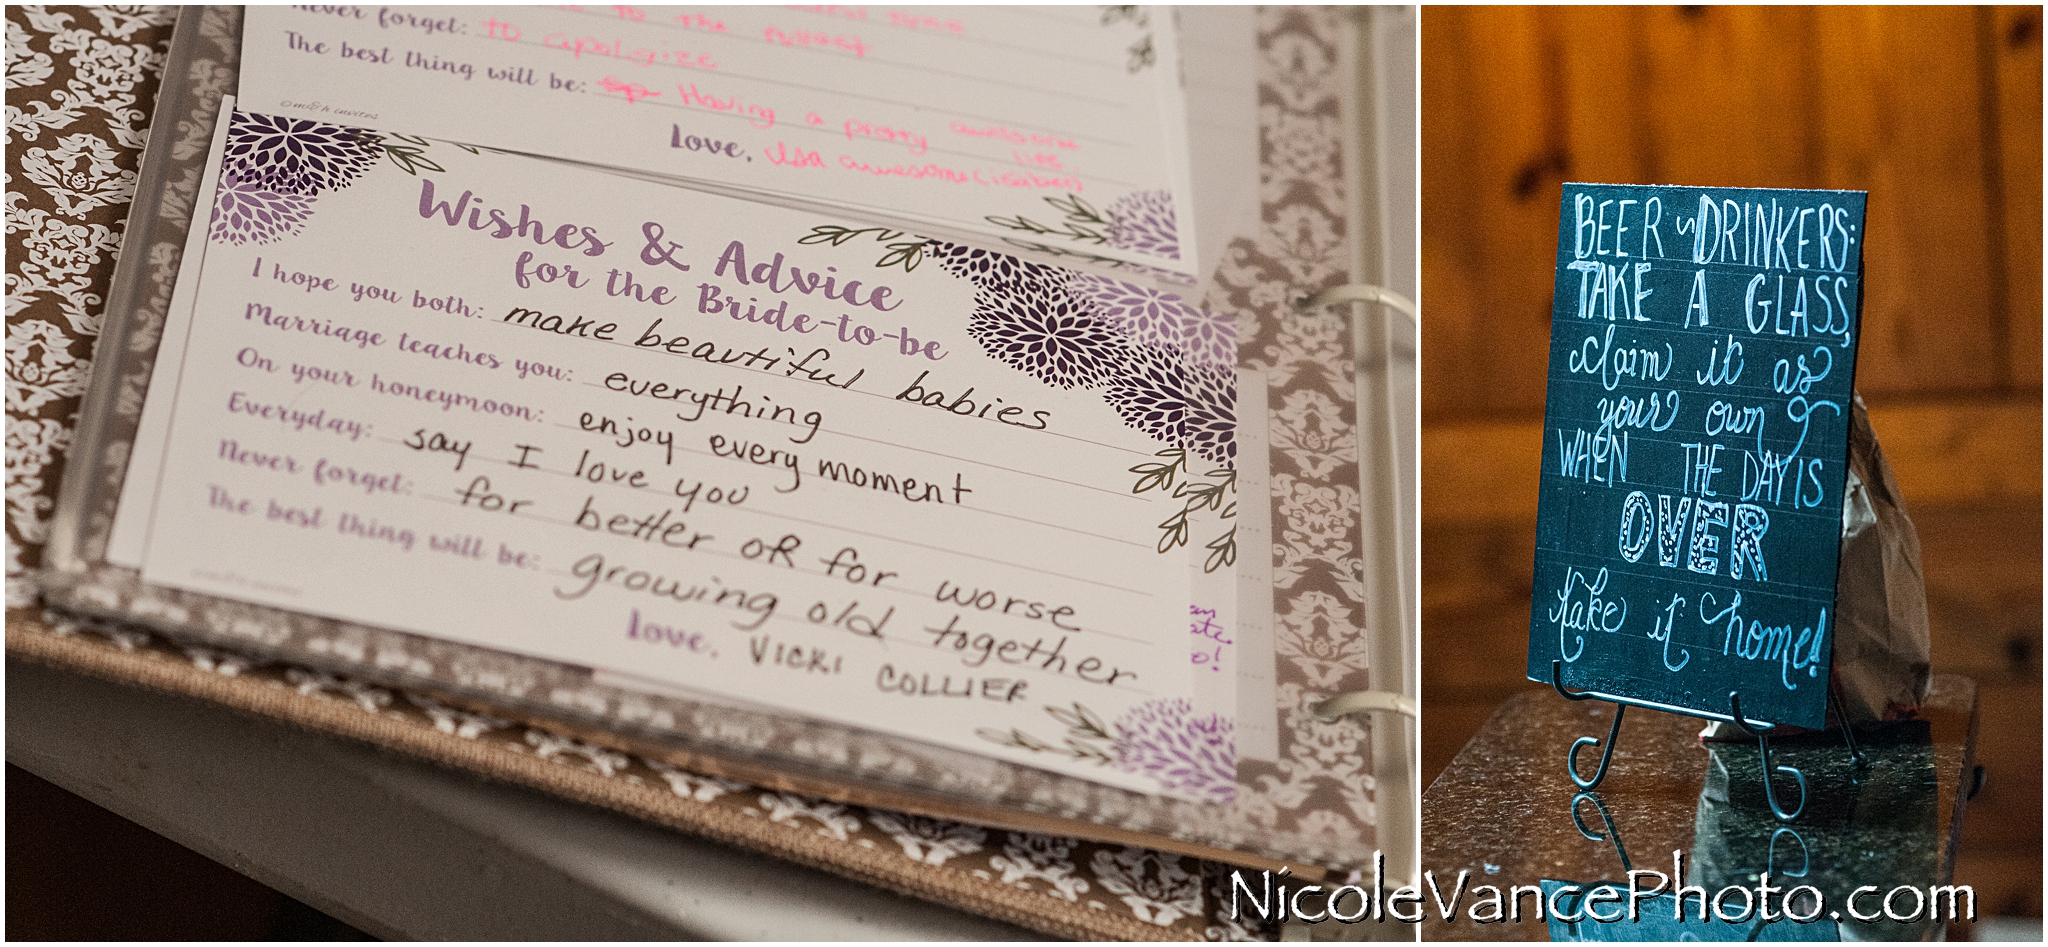 Never forget: to apolgize
The best thing will be: Having a pretty awesome
life
©m&h invites
Love,
Wishes & Advice
for the Bride-to-be
I hope you both: make beautiful babies
Marriage teaches you: everything
On your honeymoon: enjoy every moment
Everyday: say I love you
Never forget: for better or for worse
The best thing will be: growing old together
Love, VICKI COLLIER
BEER DRINKERS:
TAKE A GLASS,
claim it as
your own
WHEN THE DAY IS
OVER
take it home!
NicoleVancePhoto.com